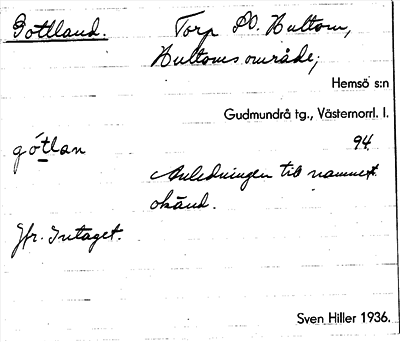 Gottland.
Torp På Hultom,
Hultoms område;
Hemsö s:n
Gudmundrå tg., Västernorrl. l.
94
gótlan
Anledningen till namnet
okänd.
Jfr. Intaget.
Sven Hiller 1936.